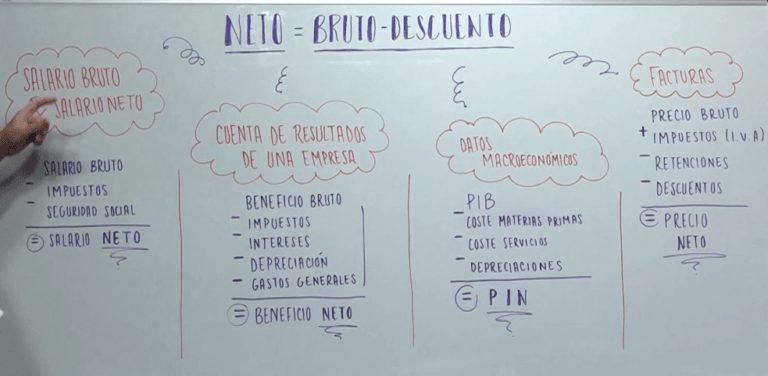 NETO = BRUTO-DESCUENTO
SALARIO BRUTO
SALARIO NETO
SALARIO BRUTO
- IMPUESTOS
- SEGURIDAD SOCIAL
= SALARIO NETO
CUENTA DE RESULTADOS
DE UNA EMPRESA
BENEFICIO BRUTO
- IMPUESTOS
- INTERESES
- DEPRECIACIÓN
- GASTOS GENERALES
= BENEFICIO NETO
DATOS
MACROECONÓMICOS
PIB
- COSTE MATERIAS PRIMAS
- COSTE SERVICIOS
- DEPRECIACIONES
= PIN
FACTURAS
PRECIO BRUTO
+ IMPUESTOS (I.V.A)
- RETENCIONES
- DESCUENTOS
= PRECIO
NETO